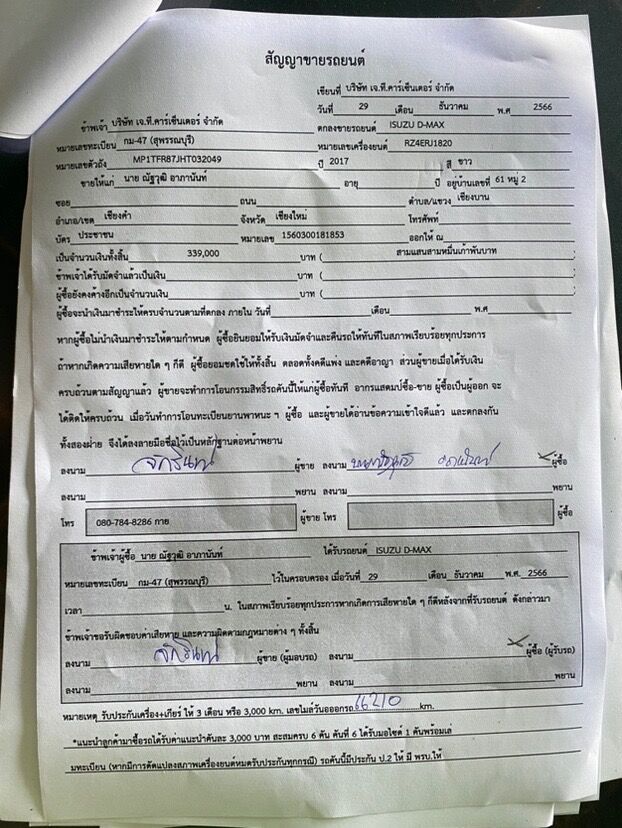 สัญญาขายรถยนต์
เขียนที่ บริษัท เจ.ที.คาร์เซ็นเตอร์ จำกัด
วันที่ 29 เดือน ธันวาคม พ.ศ 2566
ข้าพเจ้า บริษัท เจ.ที.คาร์เซ็นเตอร์ จำกัด ตกลงขายรถยนต์ ISUZU D-MAX
หมายเลขทะเบียน กม-47 (สุพรรณบุรี) หมายเลขเครื่องยนต์ RZ4ERJ1820
หมายเลขตัวถัง MP1TFR87JHT032049 ปี 2017 สี ขาว
ขายให้แก่ นาย ณัฐวุฒิ อาภานันท์ อายุ ปี อยู่บ้านเลขที่ 61 หมู่ 2
ซอย ถนน ตำบล/แขวง เชียงบาน
อำเภอ/เขต เชียงคำ จังหวัด เชียงใหม่ โทรศัพท์
บัตร ประชาชน หมายเลข 1560300181853 ออกให้ ณ
เป็นจำนวนเงินทั้งสิ้น 339,000 บาท ( สามแสนสามหมื่นเก้าพันบาท
ข้าพเจ้าได้รับมัดจำแล้วเป็นเงิน บาท (
ผู้ซื้อยังคงค้างอีกเป็นจำนวนเงิน บาท (
ผู้ซื้อจะนำเงินมาชำระให้ครบจำนวนตามที่ตกลง ภายใน วันที่ เดือน พ.ศ
หากผู้ซื้อไม่นำเงินมาชำระให้ตามกำหนด ผู้ซื้อยินยอมให้รับเงินมัดจำและคืนรถให้ทันทีในสภาพเรียบร้อยทุกประการ
ถ้าหากเกิดความเสียหายใด ๆ ก็ดี ผู้ซื้อยอมชดใช้ให้ทั้งสิ้น ตลอดทั้งคดีแพ่ง และคดีอาญา ส่วนผู้ขายเมื่อได้รับเงิน
ครบถ้วนตามสัญญาแล้ว ผู้ขายจะทำการโอนกรรมสิทธิ์รถคันนี้ให้แก่ผู้ซื้อทันที อากรแสตมป์ซื้อ-ขาย ผู้ซื้อเป็นผู้ออก จะ
ได้ติดให้ครบถ้วน เมื่อวันทำการโอนทะเบียนยานพาหนะ ฯ ผู้ซื้อ และผู้ขายได้อ่านข้อความเข้าใจดีแล้ว และตกลงกัน
ทั้งสองฝ่าย จึงได้ลงลายมือชื่อไว้เป็นหลักฐานต่อหน้าพยาน
ลงนาม จักรินทร์ ผู้ขาย ลงนาม ผู้ซื้อ
ลงนาม พยาน ลงนาม พยาน
โทร 080-784-8286 กาย ผู้ขาย โทร ผู้ซื้อ
ข้าพเจ้าผู้ซื้อ นาย ณัฐวุฒิ อาภานันท์ ได้รับรถยนต์ ISUZU D-MAX
หมายเลขทะเบียน กม-47 (สุพรรณบุรี) ไว้ในครอบครอง เมื่อวันที่ 29 เดือน ธันวาคม พ.ศ. 2566
เวลา น. ในสภาพเรียบร้อยทุกประการหากเกิดการเสียหายใด ๆ ก็ดีหลังจากที่รับรถยนต์ ดังกล่าวมา
ข้าพเจ้าขอรับผิดชอบค่าเสียหาย และความผิดตามกฎหมายต่าง ๆ ทั้งสิ้น
ลงนาม จักรินทร์ ผู้ขาย (ผู้มอบรถ) ลงนาม ผู้ซื้อ (ผู้รับรถ)
ลงนาม พยาน ลงนาม พยาน
หมายเหตุ รับประกันเครื่อง+เกียร์ ให้ 3 เดือน หรือ 3,000 km. เลขไมล์วันออกรถ 66210 km.
*แนะนำลูกค้ามาซื้อรถได้รับค่าแนะนำคันละ 3,000 บาท สะสมครบ 6 คัน คันที่ 6 ได้รับมอไซด์ 1 คันพร้อมเล่
มทะเบียน (หากมีการดัดแปลงสภาพเครื่องยนต์หมดรับประกันทุกกรณี) รถคันนี้มีประกัน ป.2 ให้ มี พรบ.ให้